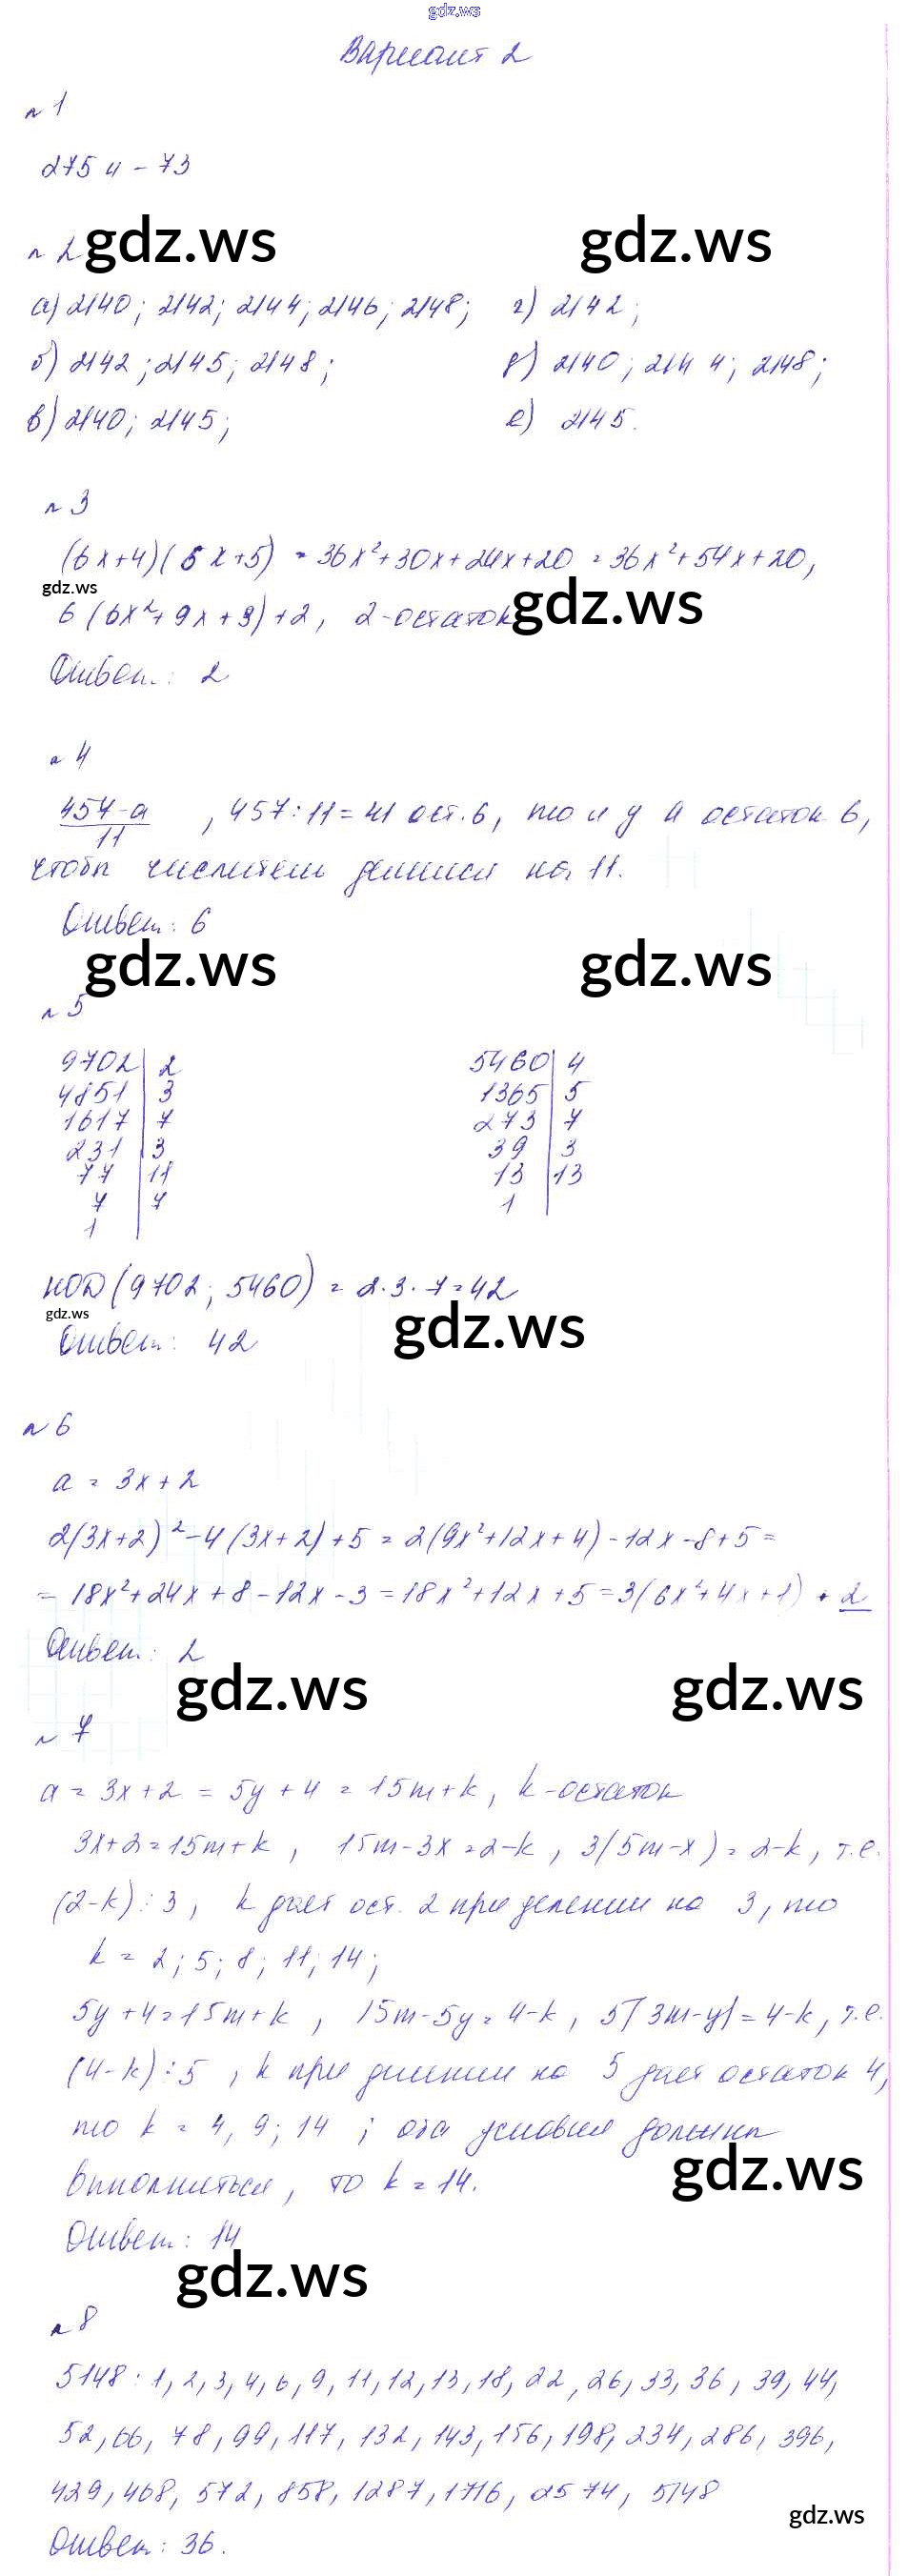 gdz.ws
Вариант 2
n 1
275 и - 73
n 2 gdz.ws gdz.ws
а) 2140; 2142; 2144; 2146; 2148; г) 2142;
б) 2142; 2145; 2148; д) 2140; 2144; 2148;
в) 2140; 2145; е) 2145.
n 3
(6x+4)(6x+5) = 36x²+30x+24x+20 = 36x²+54x+20,
gdz.ws
6(6x²+9x+3)+2, 2-остаток gdz.ws
Ответ: 2
n 4
457-a / 11 , 457:11 = 41 ост. 6, то и у а остаток 6,
чтобы числитель делился на 11.
Ответ: 6
gdz.ws gdz.ws
n 5
9702 | 2 5460 | 4
4851 | 3 1365 | 5
1617 | 7 273 | 7
231 | 3 39 | 3
77 | 11 13 | 13
7 | 7 1
1
НОД (9702; 5460) = 2·3·7 = 42
gdz.ws gdz.ws
Ответ: 42
n 6
a = 3x + 2
2(3x+2)² - 4(3x+2) + 5 = 2(9x²+12x+4) - 12x - 8 + 5 =
= 18x² + 24x + 8 - 12x - 3 = 18x² + 12x + 5 = 3(6x²+4x+1) + 2
Ответ: 2
gdz.ws gdz.ws
n 7
a = 3x + 2 = 5y + 4 = 15m + k, k-остаток
3x+2 = 15m+k, 15m-3x = 2-k, 3(5m-x) = 2-k, т.е.
(2-k):3, k дает ост. 2 при делении на 3, то
k = 2; 5; 8; 11; 14;
5y+4 = 15m+k, 15m-5y = 4-k, 5(3m-y) = 4-k, т.е.
(4-k):5, k при делении на 5 дает остаток 4,
то k = 4, 9; 14; оба условия должны
gdz.ws
выполниться, то k = 14.
Ответ: 14
gdz.ws
n 8
5148: 1, 2, 3, 4, 6, 9, 11, 12, 13, 18, 22, 26, 33, 36, 39, 44,
52, 66, 78, 99, 117, 132, 143, 156, 198, 234, 286, 396,
429, 468, 572, 858, 1287, 1716, 2574, 5148
gdz.ws
Ответ: 36.